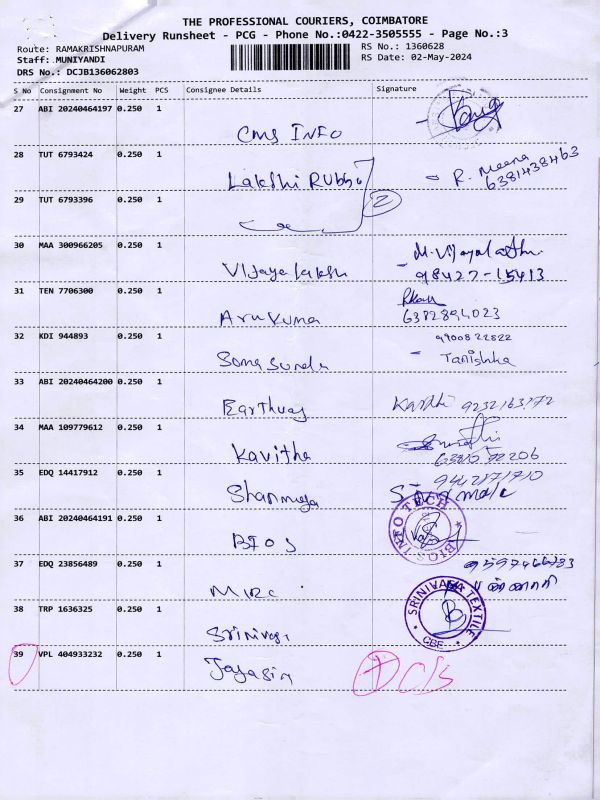 THE PROFESSIONAL COURIERS, COIMBATORE
Delivery Runsheet - PCG - Phone No.:0422-3505555 - Page No.:3
Route: RAMAKRISHNAPURAM RS No.: 1360628
Staff: MUNIYANDI RS Date: 02-May-2024
DRS No.: DCJB136062803
S No Consignment No Weight PCS Consignee Details Signature
27 ABI 20240464197 0.250 1
CMS INFO
28 TUT 6793424 0.250 1
Lakshi Rubbe R. Meena
6381438463
29 TUT 6793396 0.250 1
2
30 MAA 300966205 0.250 1
Vijayalakshi M. Vijayalakshmi
98427-15413
31 TEN 7706300 0.250 1
Arukuma 6382894023
32 KDI 944893 0.250 1 9900822822
Somasunda Tanishka
33 ABI 20240464200 0.250 1
Karthi 9232163172
34 MAA 109779612 0.250 1
Kavitha
35 EDQ 14417912 0.250 1
Shanmuga
36 ABI 20240464191 0.250 1
BIOS BIOS INFO TECH
37 EDQ 23856489 0.250 1
MRC
38 TRP 1636325 0.250 1
Srinivasa SRINIVASA TEXTILE
CBE
39 VPL 404933232 0.250 1
Jayasim C/S